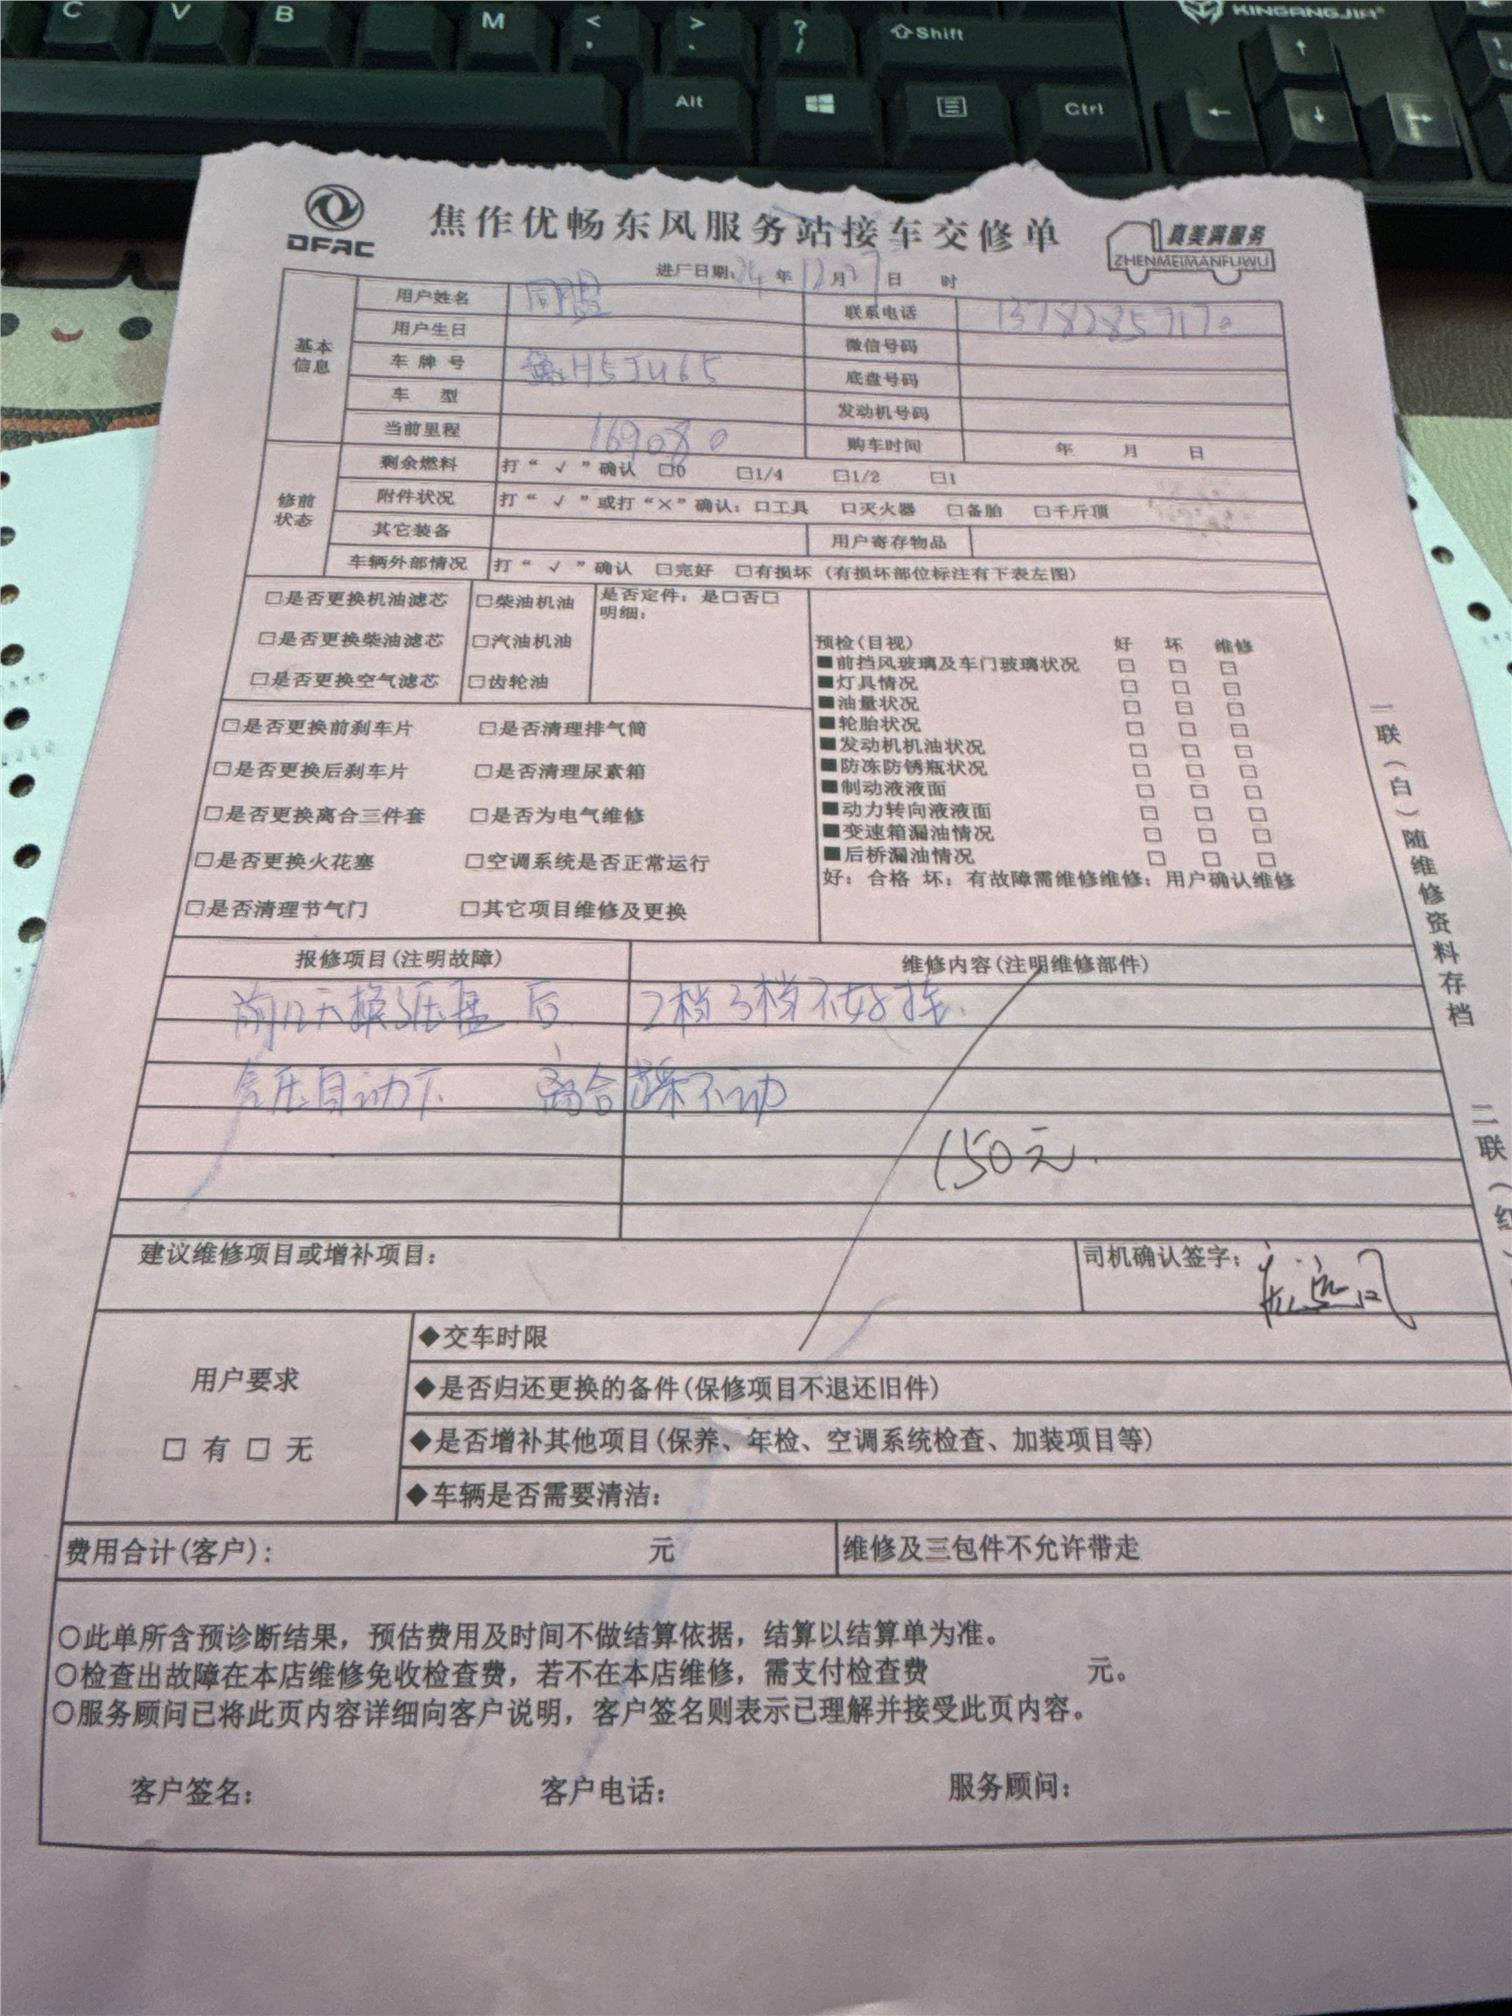 C V B M < , > . ? / ⇧Shift
KINGANGJIA®
Alt Ctrl
DFAC
焦作优畅东风服务站接车交修单
真美满服务
ZHENMEIMANFUWU
进厂日期:24年12月27日 时
基本信息
用户姓名 同盟 联系电话
用户生日 微信号码
车牌号 豫H5JU65 底盘号码
车型 发动机号码
当前里程 169080 购车时间 年 月 日
修前状态
剩余燃料 打“√”确认 □0 □1/4 □1/2 □1
附件状况 打“√”或打“×”确认:□工具 □灭火器 □备胎 □千斤顶
其它装备 用户寄存物品
车辆外部情况 打“√”确认 □完好 □有损坏(有损坏部位标注有下表左图)
□是否更换机油滤芯 □柴油机油 是否定件:是□否□
明细:
□是否更换柴油滤芯 □汽油机油
□是否更换空气滤芯 □齿轮油
□是否更换前刹车片 □是否清理排气筒
□是否更换后刹车片 □是否清理尿素箱
□是否更换离合三件套 □是否为电气维修
□是否更换火花塞 □空调系统是否正常运行
□是否清理节气门 □其它项目维修及更换
预检(目视) 好 坏 维修
■前挡风玻璃及车门玻璃状况 □ □ □
■灯具情况 □ □ □
■油量状况 □ □ □
■轮胎状况 □ □ □
■发动机机油状况 □ □ □
■防冻防锈瓶状况 □ □ □
■制动液液面 □ □ □
■动力转向液液面 □ □ □
■变速箱漏油情况 □ □ □
■后桥漏油情况 □ □ □
好:合格 坏:有故障需维修维修:用户确认维修
报修项目(注明故障) 维修内容(注明维修部件)
前几天换压盘后 2档3档不好挂.
气压自动下 离合踩不动
150元.
建议维修项目或增补项目: 司机确认签字:
用户要求
□有□无
◆交车时限
◆是否归还更换的备件(保修项目不退还旧件)
◆是否增补其他项目(保养、年检、空调系统检查、加装项目等)
◆车辆是否需要清洁:
费用合计(客户): 元 维修及三包件不允许带走
○此单所含预诊断结果,预估费用及时间不做结算依据,结算以结算单为准。
○检查出故障在本店维修免收检查费,若不在本店维修,需支付检查费 元。
○服务顾问已将此页内容详细向客户说明,客户签名则表示已理解并接受此页内容。
客户签名: 客户电话: 服务顾问:
一联(白)随维修资料存档
二联(红